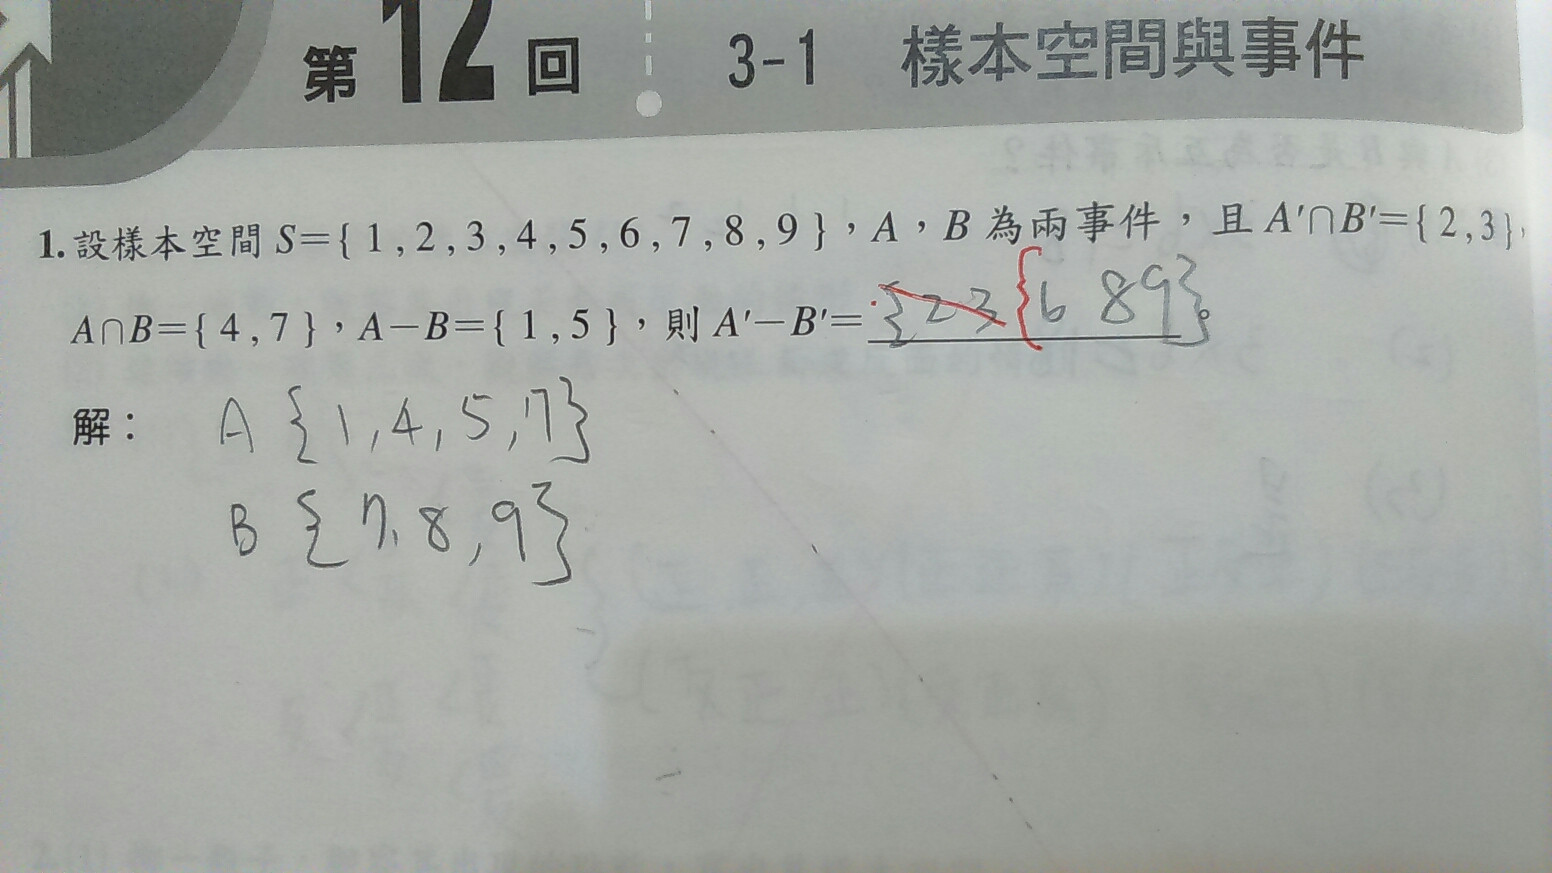 第12回 3-1 樣本空間與事件
1.設樣本空間 S={ 1 , 2 , 3 , 4 , 5 , 6 , 7 , 8 , 9 },A,B 為兩事件,且 A′∩B′={ 2 , 3 },
A∩B={ 4 , 7 },A−B={ 1 , 5 },則 A′−B′= {2 3 {6 8 9}。
解: A {1,4,5,7}
B {7,8,9}